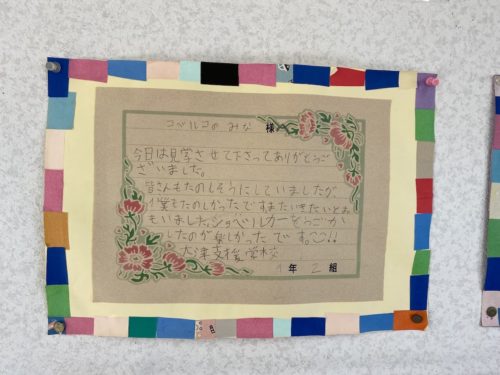 コベルコの みな 様
今日は見学させて下さってありがとうご
ざいました。
皆さんもたのしそうにしていましたが
僕もたのしかったですまたいきたいとお
もいました。ショベルカーをうごか
したのが楽しかったです。!!
大津支援学校
1年 2組